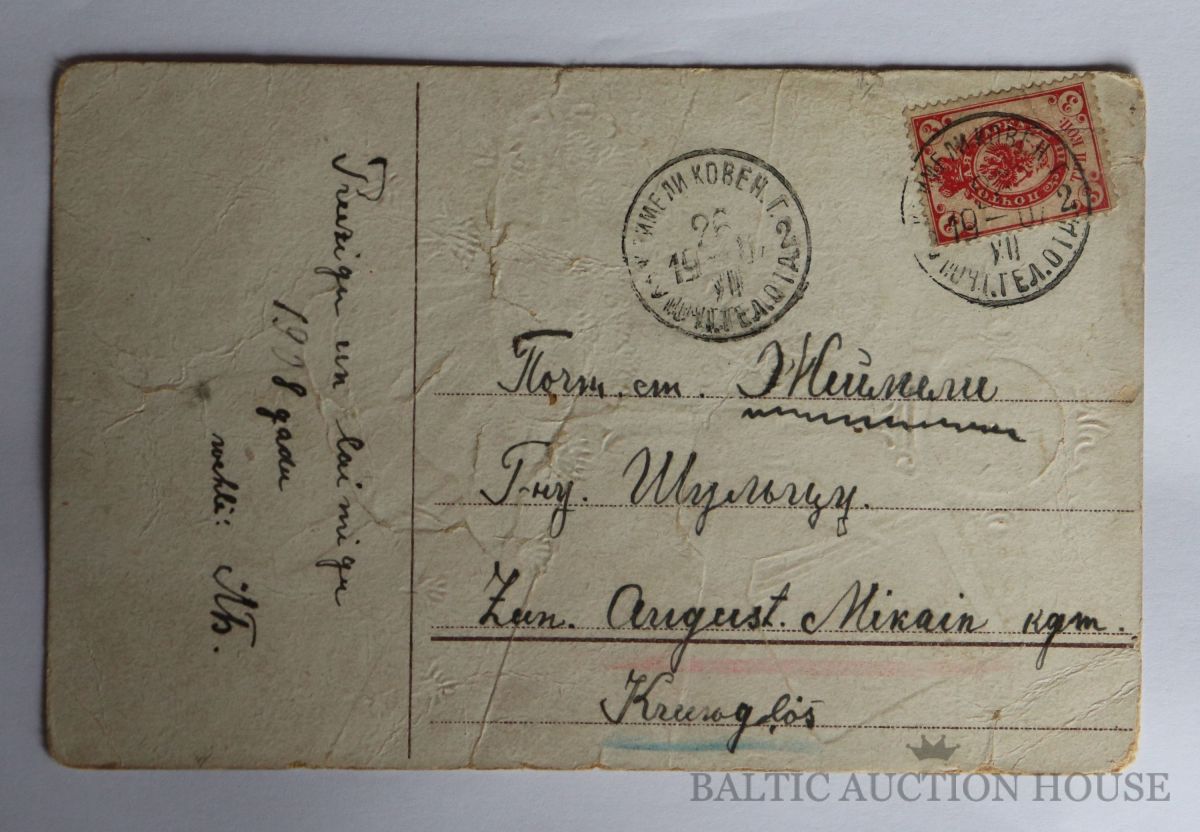 Preezigu un laimigu
1908 gadu
wehlē:
ЖЕЙМЕЛИ КОВЕН. Г.
26
19
XII
ПОЧТ.ТЕЛ.ОТД.
3
МАРКА
3 КОП
ЖЕЙМЕЛИ КОВЕН. Г.
19
XII
ПОЧТ.ТЕЛ.ОТД.
Почт. ст. Жеймели
Г-ну. Шульцу.
Zun. August. Mikain kgm.
BALTIC AUCTION HOUSE